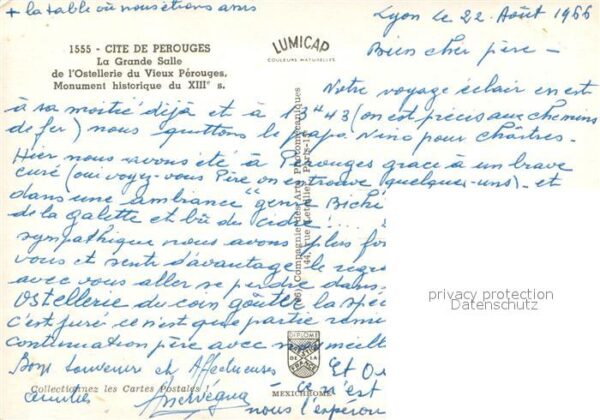 + la table où nous étions assis
Lyon le 22 Août 1966
1555 - CITE DE PEROUGES
La Grande Salle
de l'Ostellerie du Vieux Pérouges.
Monument historique du XIIIe s.
LUMICAP
COULEURS NATURELLES
Bien cher père -
Notre voyage éclair en est
à sa moitié déjà et à 13H43 (on est précis aux chemins
de fer) nous quittons le papa Nino pour Chârtres -
Hier nous avons été à Pérouges grace à un brave
curé (oui voyez-vous Père on en trouve quelques-uns) - et
dans une ambiance "genre Biché
de la galette et bû du cidre!...
sympathique nous avons plus for
vous et senti d'avantage le regre
avec vous aller se perdre dans
Ostellerie du coin goûter la spéc
c'est juré ce n'est que partie remi
continuation père avec nos meille
Bons souvenirs et Affectueuses
amitiés
Et
Ce n'est
nous l'espéron
Compagnie des Arts Photomécaniques
44, rue Letellier, Paris-15
privacy protection
Datenschutz
DIPLOME
DE LA
FRANCE
Collectionnez les Cartes Postales !
MEXICHROME